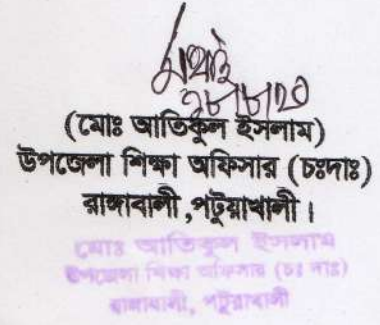 (মোঃ আতিকুল ইসলাম)
উপজেলা শিক্ষা অফিসার (চঃদাঃ)
রাঙ্গাবালী ,পটুয়াখালী ।
মোঃ আতিকুল ইসলাম
উপজেলা শিক্ষা অফিসার (চঃ দাঃ)
রাঙ্গাবালী, পটুয়াখালী